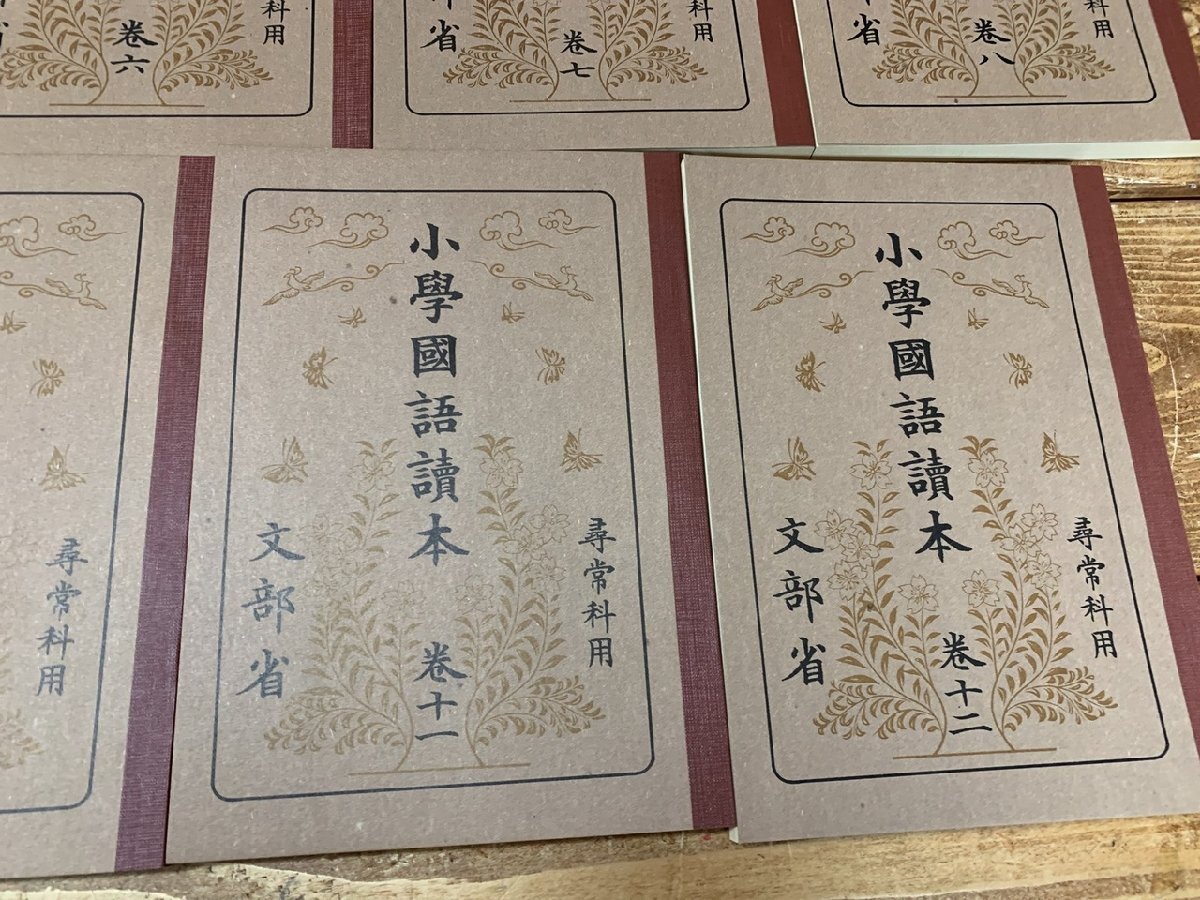 卷六
科用
省
卷七
科用
省
卷八
科用
尋常科用
小學國語讀本 卷十一
尋常科用
文部省
小學國語讀本 卷十二
尋常科用
文部省